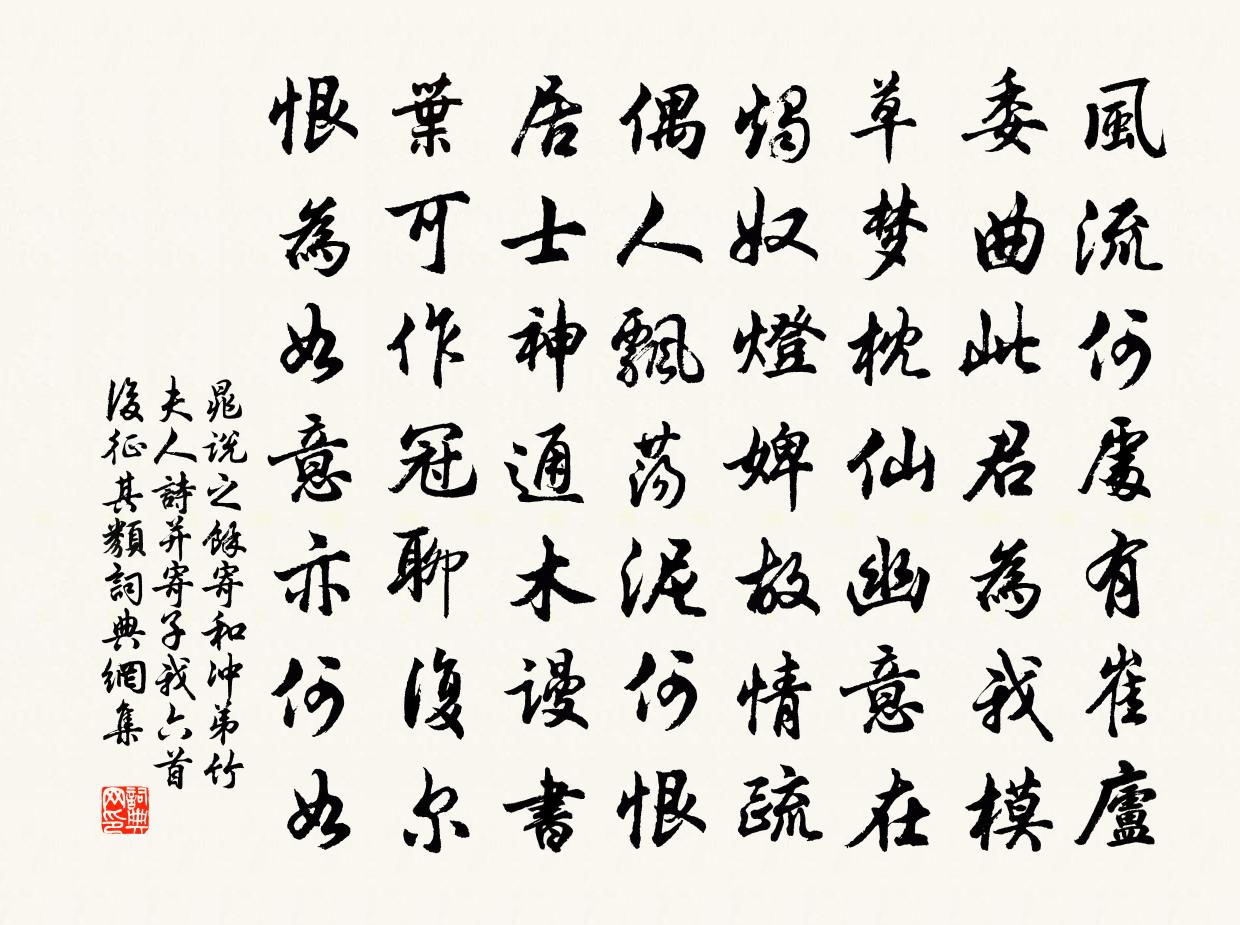 風流何處有崔廬
委曲此君為我模
草梦枕仙幽意在
燭奴燈婢故情疏
偶人飄蕩泥何恨
居士神通木謾書
葉可作冠聊復尔
恨為如意亦何如
晁説之餘寄和沖弟竹
夫人詩并寄子我六首
後征其類詞典網集
詞典网印